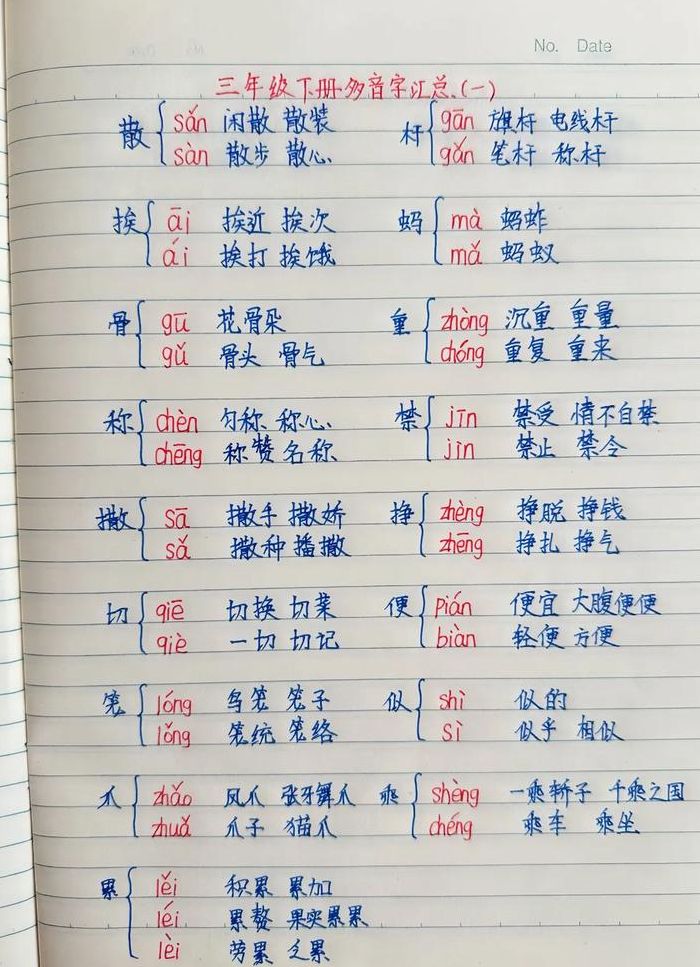 No. Date
三年级下册多音字汇总(一)
散 sǎn 闲散 散装
sàn 散步 散心
杆 gān 旗杆 电线杆
gǎn 笔杆 称杆
挨 āi 挨近 挨次
ái 挨打 挨饿
蚂 mà 蚂蚱
mǎ 蚂蚁
骨 gū 花骨朵
gǔ 骨头 骨气
重 zhòng 沉重 重量
chóng 重复 重来
称 chèn 匀称 称心
chēng 称赞 名称
禁 jīn 禁受 情不自禁
jìn 禁止 禁令
撒 sā 撒手 撒娇
sǎ 撒种 播撒
挣 zhèng 挣脱 挣钱
zhēng 挣扎 挣气
切 qiē 切换 切菜
qiè 一切 切记
便 pián 便宜 大腹便便
biàn 轻便 方便
笼 lóng 鸟笼 笼子
lǒng 笼统 笼络
似 shì 似的
sì 似乎 相似
爪 zhǎo 凤爪 张牙舞爪
zhuǎ 爪子 猫爪
乘 shèng 一乘轿子 千乘之国
chéng 乘车 乘坐
累 lěi 积累 累加
léi 累赘 果实累累
lèi 劳累 乏累
No. Date